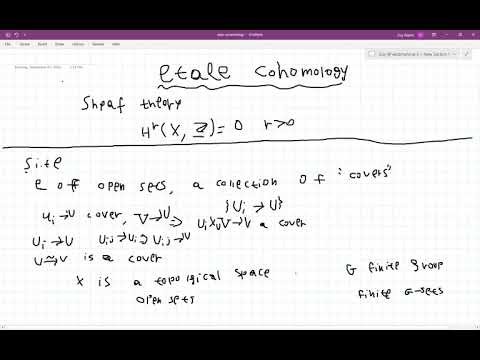 etale cohomology
Sheaf theory
H^r(X, Z) = 0 r>0
Site
e off open sets, a collection of "covers"
{U_i → U}
U_i → U cover, V → U ⇒ U_i ×_U V → V a cover
U_i → U U_ij → U_i ⊃ U_ij → U
U ≅ U is a cover
X is a topological space
open sets
G finite group
finite G-sets